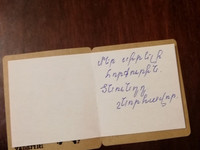 Մեր սիրելի
հորքուրին
Ծնունդդ
շնորհավոր